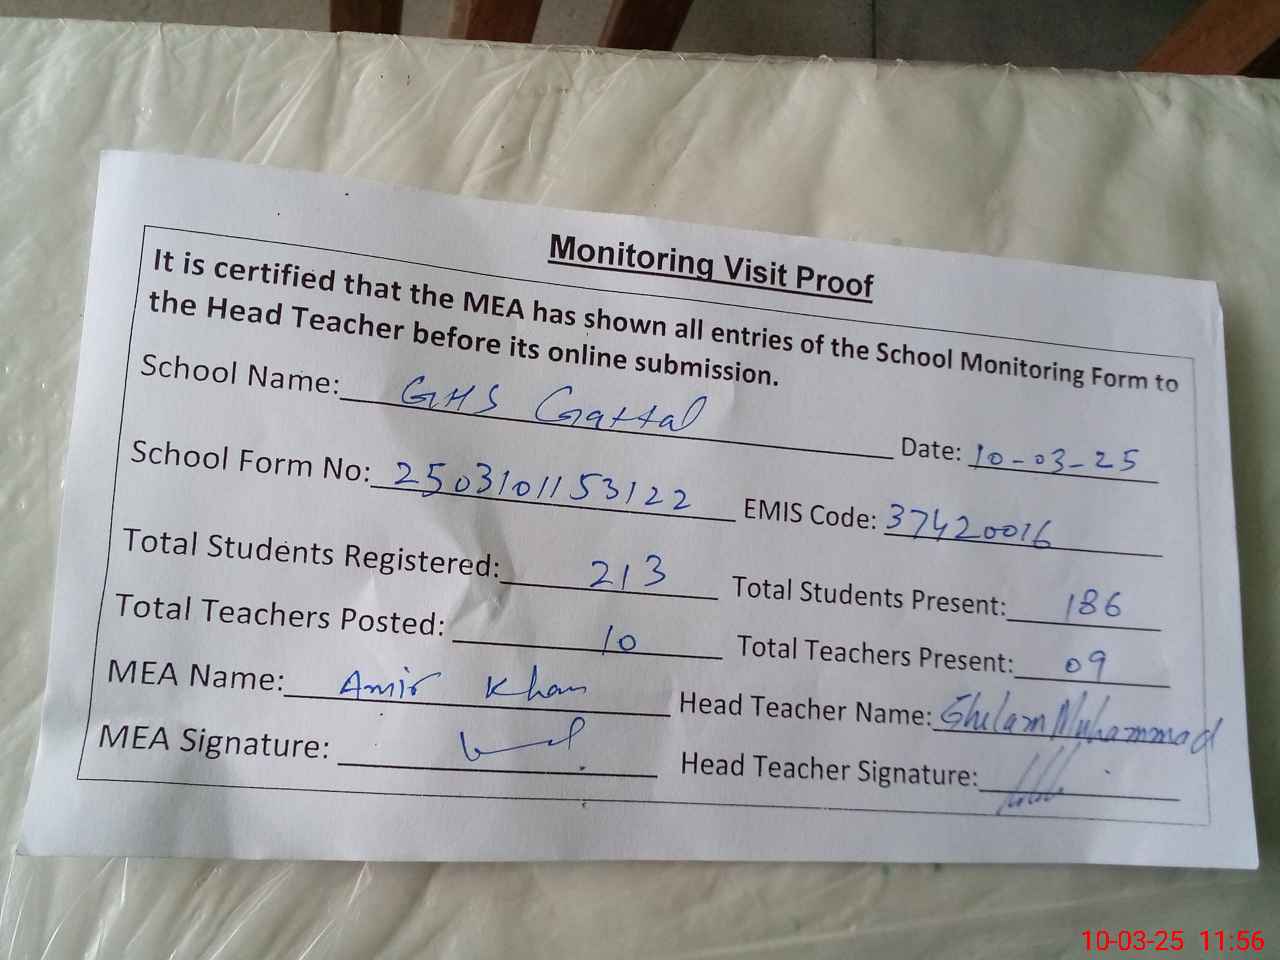 Monitoring Visit Proof
It is certified that the MEA has shown all entries of the School Monitoring Form to
the Head Teacher before its online submission.
School Name: GHS Gattal Date: 10-03-25
School Form No: 2503101153122 EMIS Code: 37420016
Total Students Registered: 213 Total Students Present: 186
Total Teachers Posted: 10 Total Teachers Present: 09
MEA Name: Amir Khan Head Teacher Name: Ghulam Muhammad
MEA Signature: Head Teacher Signature:
10-03-25 11:56